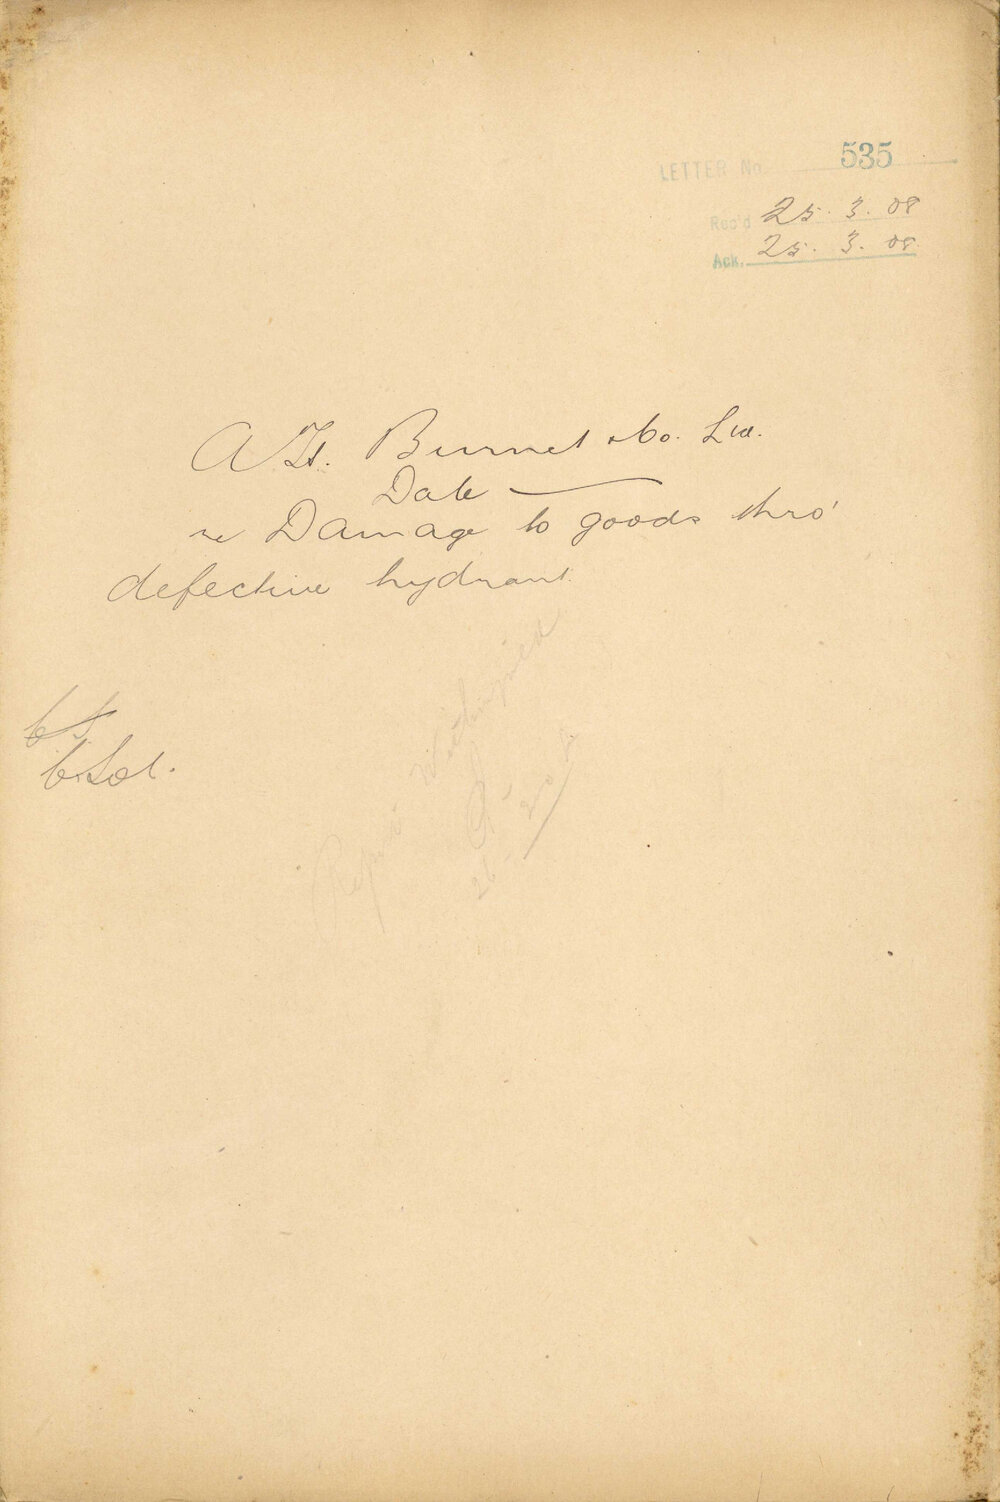 LETTER No. 535
Rec'd 25.3.08
Ack. 25.3.08
A. H. Burnet & Co. Ltd.
Date —
re Damage to goods thro'
defective hydrant
C. Sol.
Report
26